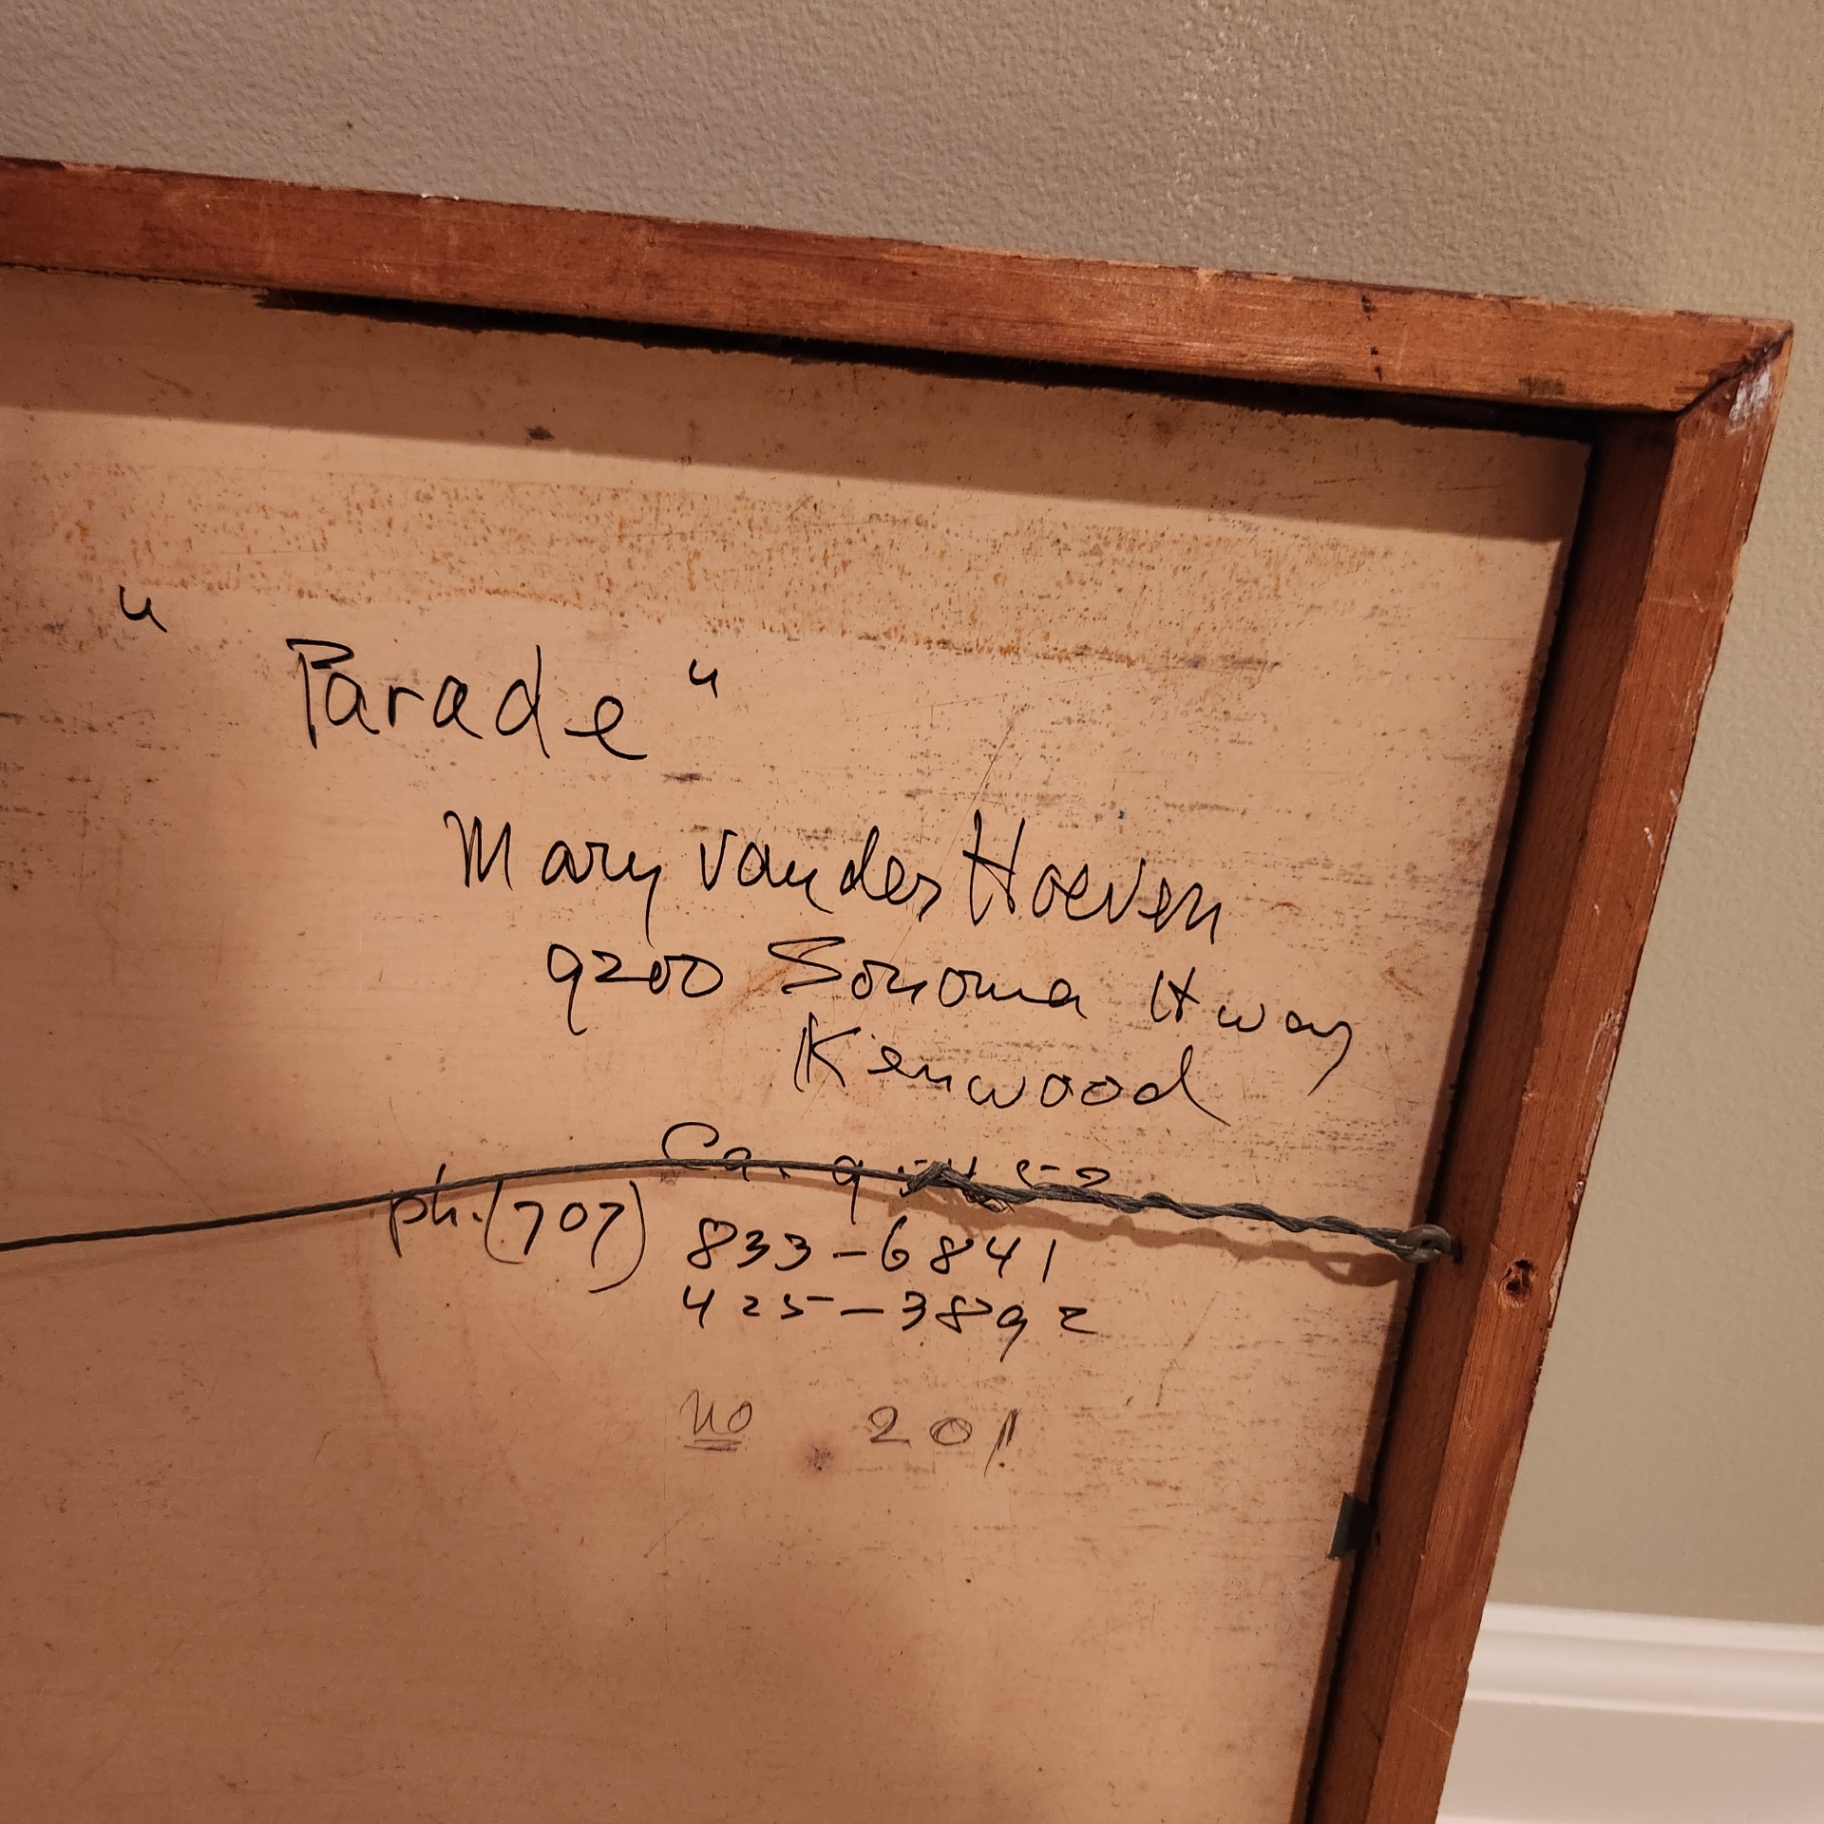 " Parade "
Mary van der Hoeven
9200 Sonoma Hway
Kenwood
Ca. 95452
ph. (707) 833-6841
425-3892
no 201